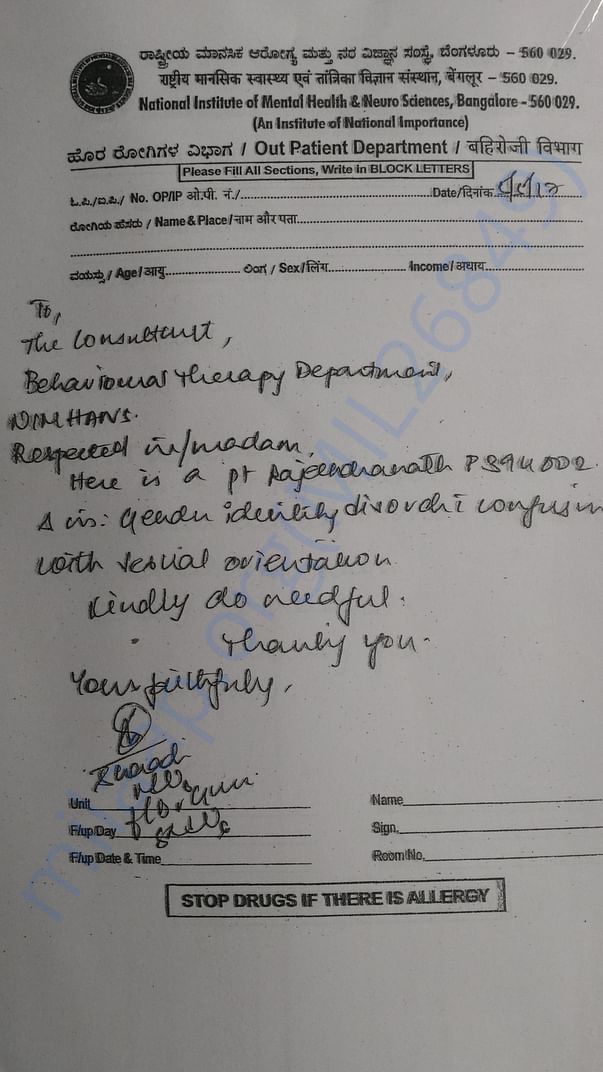 ರಾಷ್ಟ್ರೀಯ ಮಾನಸಿಕ ಆರೋಗ್ಯ ಮತ್ತು ನರ ವಿಜ್ಞಾನ ಸಂಸ್ಥೆ, ಬೆಂಗಳೂರು – 560 029.
राष्ट्रीय मानसिक स्वास्थ्य एवं तांत्रिका विज्ञान संस्थान, बेंगलूर – 560 029.
National Institute of Mental Health & Neuro Sciences, Bangalore - 560 029.
(An Institute of National Importance)
ಹೊರ ರೋಗಿಗಳ ವಿಭಾಗ / Out Patient Department / बहिरोजी विभाग
Please Fill All Sections, Write in BLOCK LETTERS
ಓ.ಪಿ./ಐ.ಪಿ./ No. OP/IP ओ.पी. नं./ Date/दिनांक
ರೋಗಿಯ ಹೆಸರು / Name & Place / नाम और पता
ವಯಸ್ಸು / Age / आयु ಲಿಂಗ / Sex / लिंग Income / अधाय
To,
The Consultant,
Behavioural Therapy Department,
NIMHANS.
Respected sir/madam,
Here is a pt Rajeendranath P
Gender identity confusion
with sexual orientation
Kindly do needful.
Thank you.
Yours faithfully,
Unit
F/up Day
F/up Date & Time
Name
Sign.
Room No.
STOP DRUGS IF THERE IS ALLERGY
milaap.org(MIL268849)